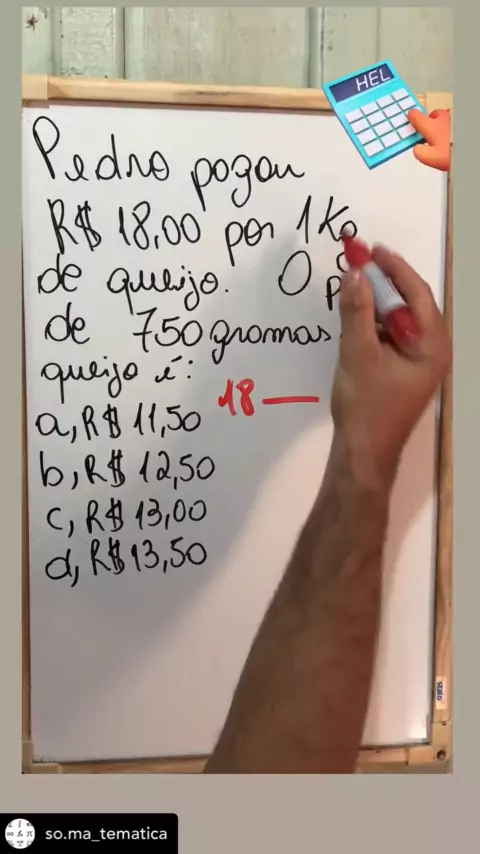 HEL
Pedro pagou
R$ 18,00 por 1Kg
de queijo. O
de 750 gramas
queijo é:
a, R$ 11,50
18 —
b, R$ 12,50
c, R$ 13,00
d, R$ 13,50
so.ma_tematica